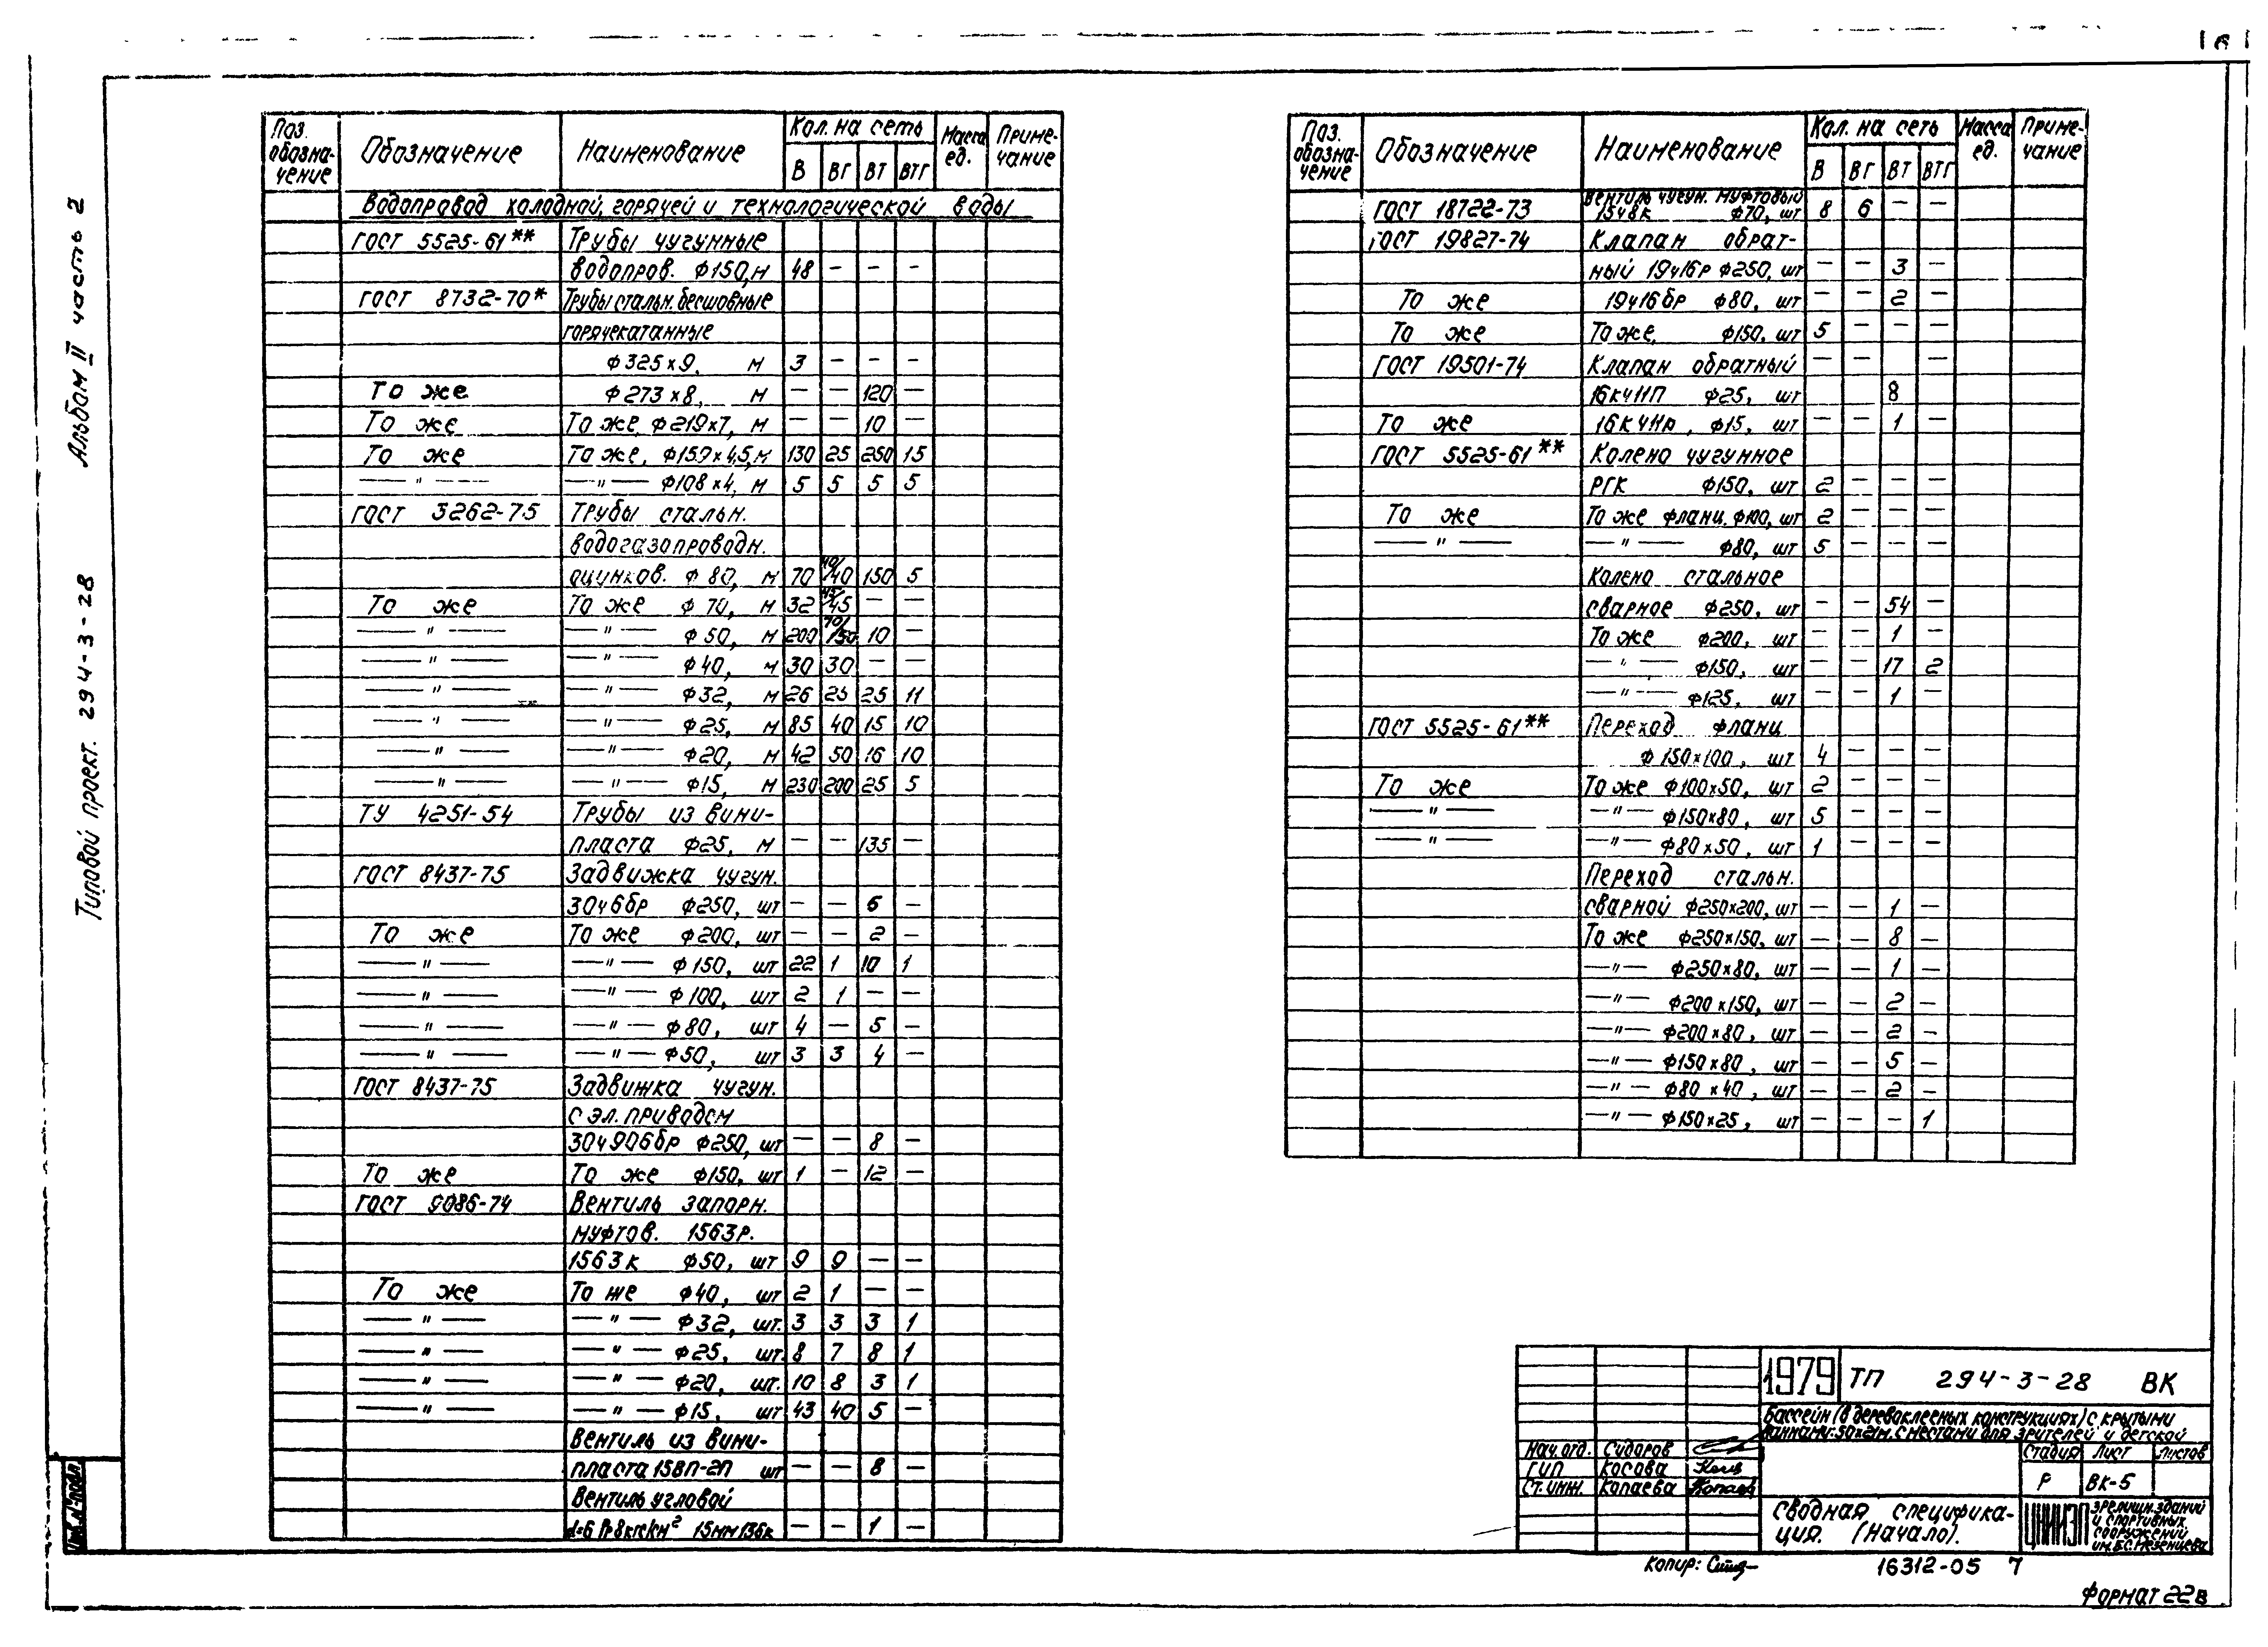 Альбом II часть 2
Типовой проект. 294-3-28
Поз. обозна-чение Обозначение Наименование Кол. на сеть Масса ед. Приме-чание
В ВГ ВТ ВТГ
Водопровод холодной, горячей и технологической воды
ГОСТ 5525-61** Трубы чугунные
водопров. ф150, м 48 — — —
ГОСТ 8732-70* Трубы стальн. бесшовные
горячекатанные
ф325х9, м 3 — — —
То же ф273х8, м — — 120 —
То же То же, ф219х7, м — — 10 —
То же То же, ф159х4,5, м 130 25 250 15
—"— —"— ф108х4, м 5 5 5 5
ГОСТ 3262-75 Трубы стальн.
водогазопроводн.
оцинков. ф80, м 70 40/40 150 5
То же То же ф70, м 32 45/45 — —
—"— —"— ф50, м 200 70/150 10 —
—"— —"— ф40, м 30 30 — —
—"— —"— ф32, м 26 25 25 11
—"— —"— ф25, м 85 40 15 10
—"— —"— ф20, м 42 50 16 10
—"— —"— ф15, м 230 200 25 5
ТУ 4251-54 Трубы из вини-
пласта ф25, м — — 135 —
ГОСТ 8437-75 Задвижка чугун.
30ч6бр ф250, шт — — 6 —
То же То же ф200, шт — — 2 —
—"— —"— ф150, шт 22 1 10 1
—"— —"— ф100, шт 2 1 — —
—"— —"— ф80, шт 4 — 5 —
—"— —"— ф50, шт 3 3 4 —
ГОСТ 8437-75 Задвижка чугун.
с эл. приводом
30ч906бр ф250, шт — — 8 —
То же То же ф150, шт 1 — 12 —
ГОСТ 9086-74 Вентиль запорн.
муфтов. 15б3р.
15б3к ф50, шт 9 9 — —
То же То же ф40, шт 2 1 — —
—"— —"— ф32, шт. 3 3 3 1
—"— —"— ф25, шт. 8 7 8 1
—"— —"— ф20, шт. 10 8 3 1
—"— —"— ф15, шт 43 40 5 —
Вентиль из вини-
пласта 15вп-2п шт — — 8 —
Вентиль угловой
15мм 13бк — — 1 —
Поз. обозна-чение Обозначение Наименование Кол. на сеть Масса ед. Приме-чание
В ВГ ВТ ВТГ
ГОСТ 18722-73 Вентиль чугун. муфтовый
15ч8к ф70, шт 8 6 — —
ГОСТ 19827-74 Клапан обрат-
ный 19ч16р ф250, шт — — 3 —
То же 19ч16бр ф80, шт — — 2 —
То же То же, ф150, шт 5 — — —
ГОСТ 19501-74 Клапан обратный — — — —
16кч11п ф25, шт 8
То же 16кч11р, ф15, шт — — 1 —
ГОСТ 5525-61** Колено чугунное
РГК ф150, шт 2 — — —
То же То же фланц. ф100, шт 2 — — —
—"— —"— ф80, шт 5 — — —
Колено стальное
сварное ф250, шт — — 54 —
То же ф200, шт — — 1 —
—"— ф150, шт — — 17 2
—"— ф125, шт — — 1 —
ГОСТ 5525-61** Переход фланц
ф150х100, шт 4 — — —
То же То же ф100х50, шт 2 — — —
—"— —"— ф150х80, шт 5 — — —
—"— —"— ф80х50, шт 1 — — —
Переход стальн.
сварной ф250х200, шт — — 1 —
То же ф250х150, шт — — 8 —
—"— ф250х80, шт — — 1 —
—"— ф200х150, шт — — 2 —
—"— ф200х80, шт — — 2 —
—"— ф150х80, шт — — 5 —
—"— ф80х40, шт — — 2 —
—"— ф150х25, шт — — — 1
1979 ТП 294-3-28 ВК
Бассейн (в деревоклееных конструкциях) с крытыми
ваннами: 50х21м. с местами для зрителей и детской
Нач. отд. Сидоров
ГИП Косова
Ст. инж. Копаева
Стадия Лист Листов
Р ВК-5
Сводная специфика-
ция. (Начало).
ЦНИИЭП
зрелищн. зданий
и спортивных
сооружений
им. Б.С. Мезенцева
Инв. № подл.
Копир:
16312-05 7
Формат 22в